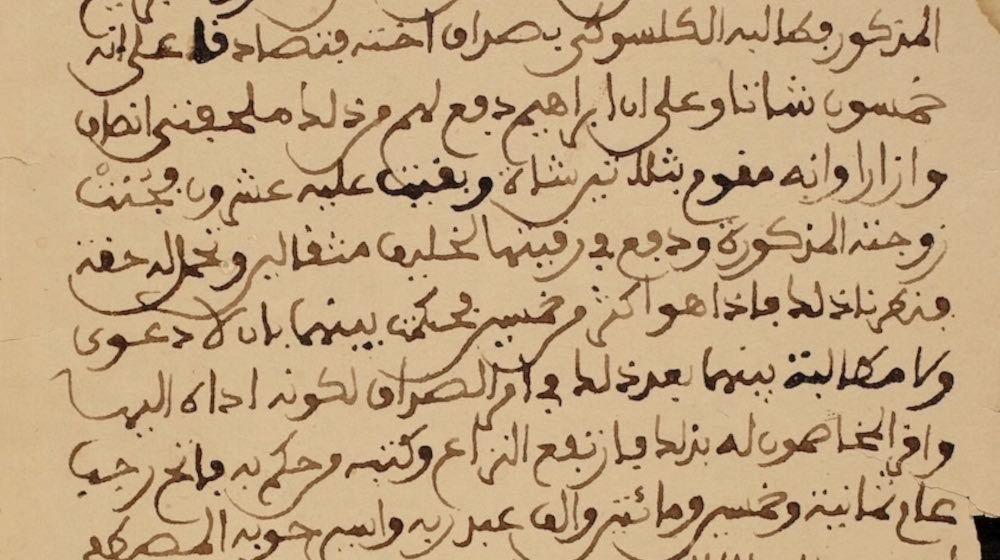 المذكور فطالبه الكلسوكي بصداق اخته فتصادفا على انه
خمسون شاتا وعلى ان ابراهيم دفع لهم من ذلك ملحفتي انصاف
وازارا وانه مقوم بثلاثين شاة وبقيت عليه عشرون
زوجته المذكورة ودفع في رقبتها مثقالين وتحمل له
فنظرنا ذلك فاذا هو اكثر من خمسين فحكمت بينهما بان لا دعوى
ولا مطالبة بينهما بعد ذلك في امر الصداق لكونه اداه اليها
واقر المخاصمون له بذلك فارتفع النزاع وكتبه من حكم به فاتح رجب
عام ثمانية وخمسين ومائتين والف عبد ربه واسير ذنبه المصطفى